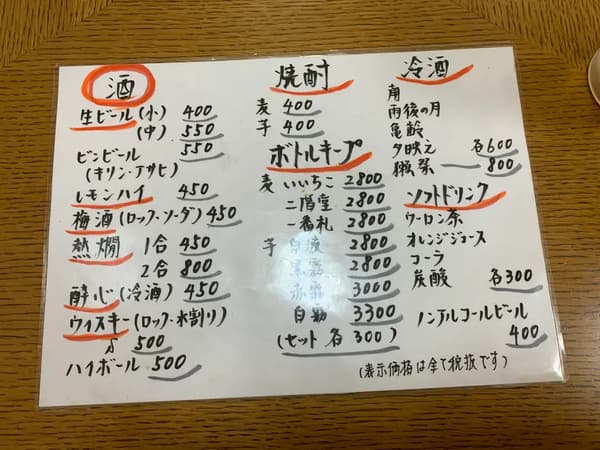 酒
生ビール(小) 400
(中) 550
ビンビール 550
(キリン・アサヒ)
レモンハイ 450
梅酒(ロック・ソーダ) 450
熱燗 1合 450
2合 800
酔心(冷酒) 450
ウィスキー(ロック・水割り)
500
ハイボール 500
焼酎
麦 400
芋 400
ボトルキープ
麦 いいちこ 2800
二階堂 2800
一番札 2800
芋 白波 2800
黒霧 2800
赤霧 3000
白勘 3300
(セット各300)
冷酒
雨後の月
亀齢
夕映え 各600
獺祭 800
ソフトドリンク
ウーロン茶
オレンジジュース
コーラ
炭酸 各300
ノンアルコールビール
400
(表示価格は全て税抜です)